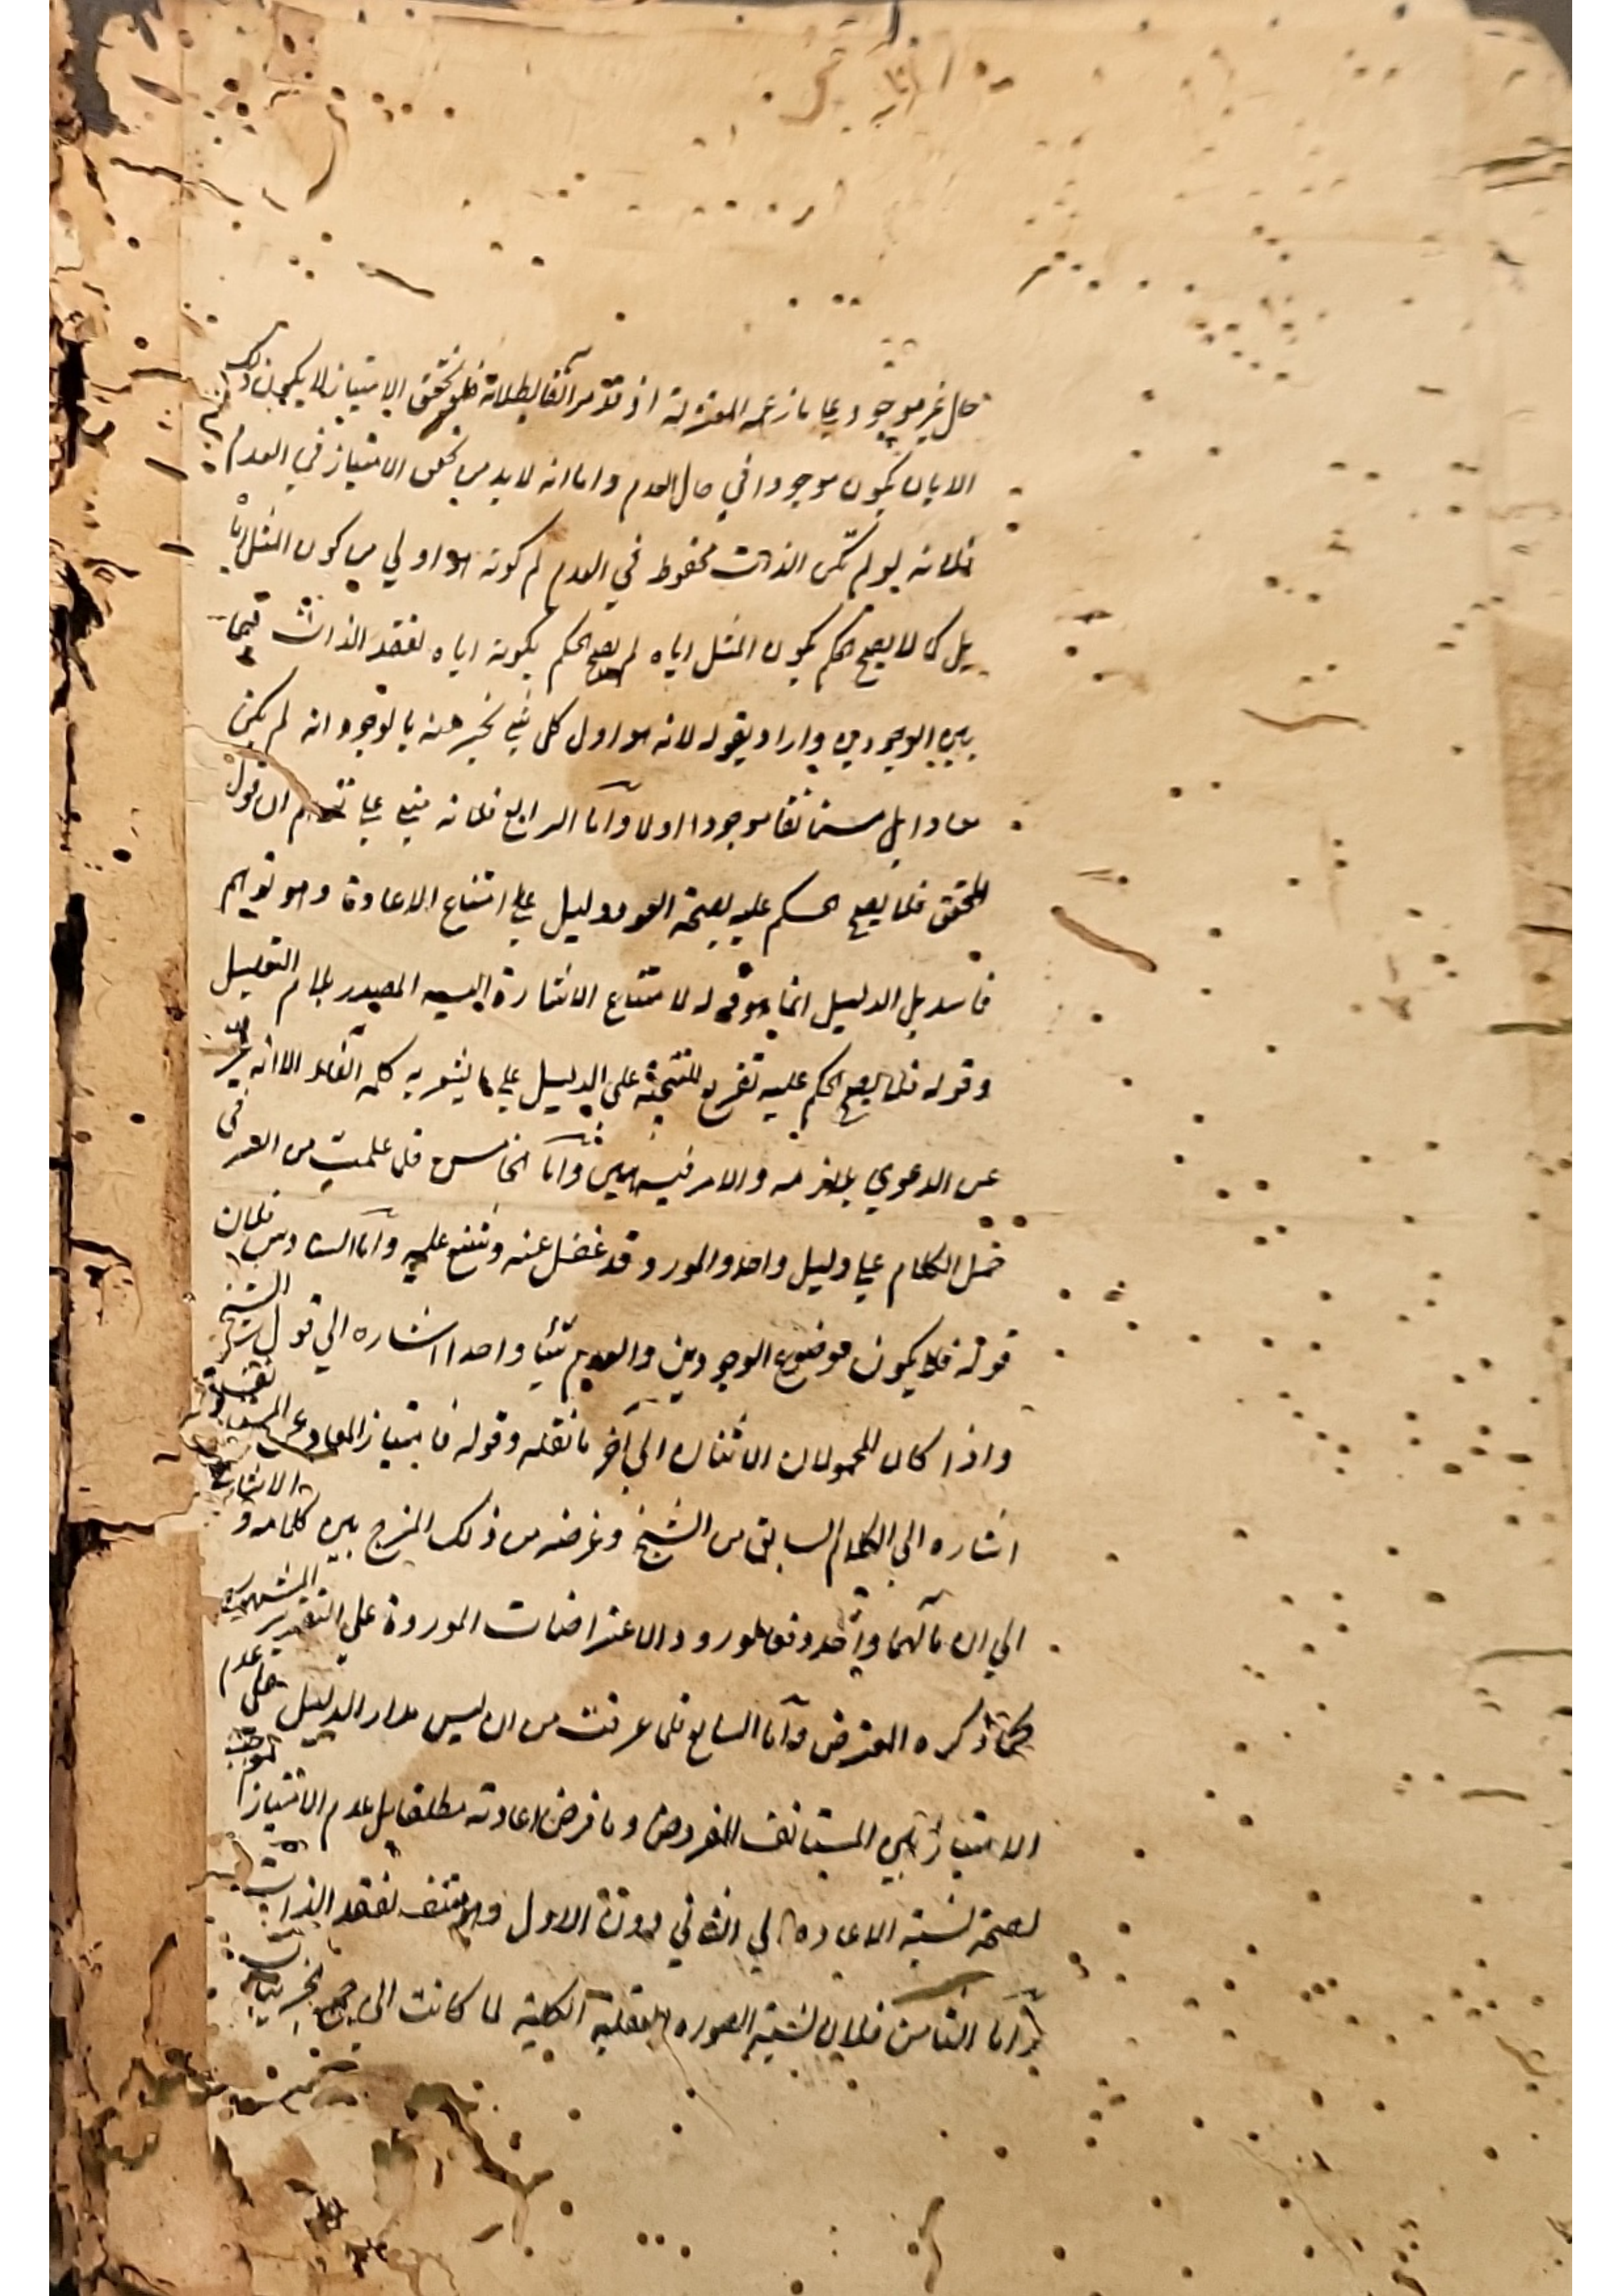 حال غير موجود على ما زعمه المعتزلة اذ قد مر آنفا بطلانه فلو تحقق الامتياز لا يكون ذلك
الا بان يكون موجودا في حال العدم واما انه لا بد من تحقق الامتياز في العدم
فلانه لو لم تكن الذات محفوظه في العدم لم كونه هو اولي من كون المثل اياه
بل كما لا يصح الحكم بكون المثل اياه لم يصح الحكم بكونه اياه لفقد الذات فيما
بين الوجودين واراد بقوله لانه هو اول كل شي نخبر عنه بالوجود انه لم يكن
معادا بل مستانفا موجودا اولا وآما الرابع فلانه مبني علي ان قول
المحقق فلا يصح الحكم عليه بصحة العود دليل علي امتناع الاعادة وهو توهم
فاسد بل الدليل انما هو قوله لامتناع الاشارة اليه المصدر بلام التعليل
وقوله فلا يصح الحكم عليه تفريع للنتيجة على الدليل علي ما يشعر به كلمة الفاء الا انه عبر
عن الدعوي بلازمه والامر فيه هين وآما الخامس فلما علمت من العد في
حمل الكلام علي دليل واحد والمورد قد غفل عنه وشنع عليه وآما السادس فلان
قوله فلا يكون موضوع الوجودين والعدم شيئا واحدا اشاره الي قول الشيخ
واذا كان المحمولان الاثنان الي آخر ما نقله وقوله فامتياز المعاد عن المستانف
اشاره الي الكلام السابق من الشيخ وغرضه من ذلك المزج بين كلامه و الاشارة
الي ان مآلهما واحد دفعا لورود الاعتراضات الموردة علي التقرير المشهور
كما ذكره المعترض وآما السابع فلما عرفت من ان ليس مدار الدليل على عدم
الامتياز بين المستانف المفروض وما فرض اعادته مطلقا بل عدم الامتياز
لصحة نسبة الاعاده الي الثاني دون الاول وهو منتف لفقد الذات
وآما الثامن فلان نسبة الصوره العقلية الكلية لما كانت الي جميع الجزئيات